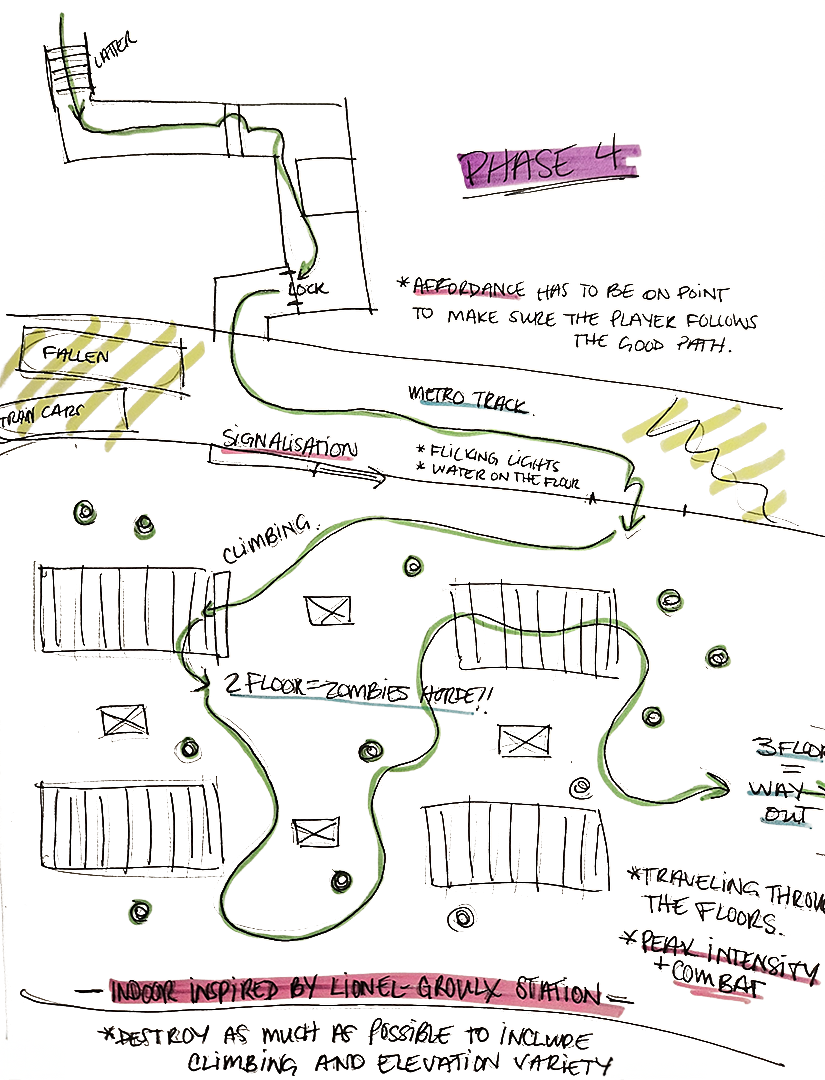 LATTER
PHASE 4
LOCK
*AFFORDANCE HAS TO BE ON POINT
TO MAKE SURE THE PLAYER FOLLOWS
THE GOOD PATH.
FALLEN
TRAIN CARS
METRO TRACK.
SIGNALISATION
* FLICKING LIGHTS
* WATER ON THE FLOOR
CLIMBING.
2 FLOOR = ZOMBIES HORDE?!
3 FLOOR
=
WAY
OUT
*TRAVELING THROU
THE FLOORS.
*PEAK INTENSITY
+ COMBAT
— INDOOR INSPIRED BY LIONEL-GROULX STATION —
*DESTROY AS MUCH AS POSSIBLE TO INCLUDE
CLIMBING AND ELEVATION VARIETY